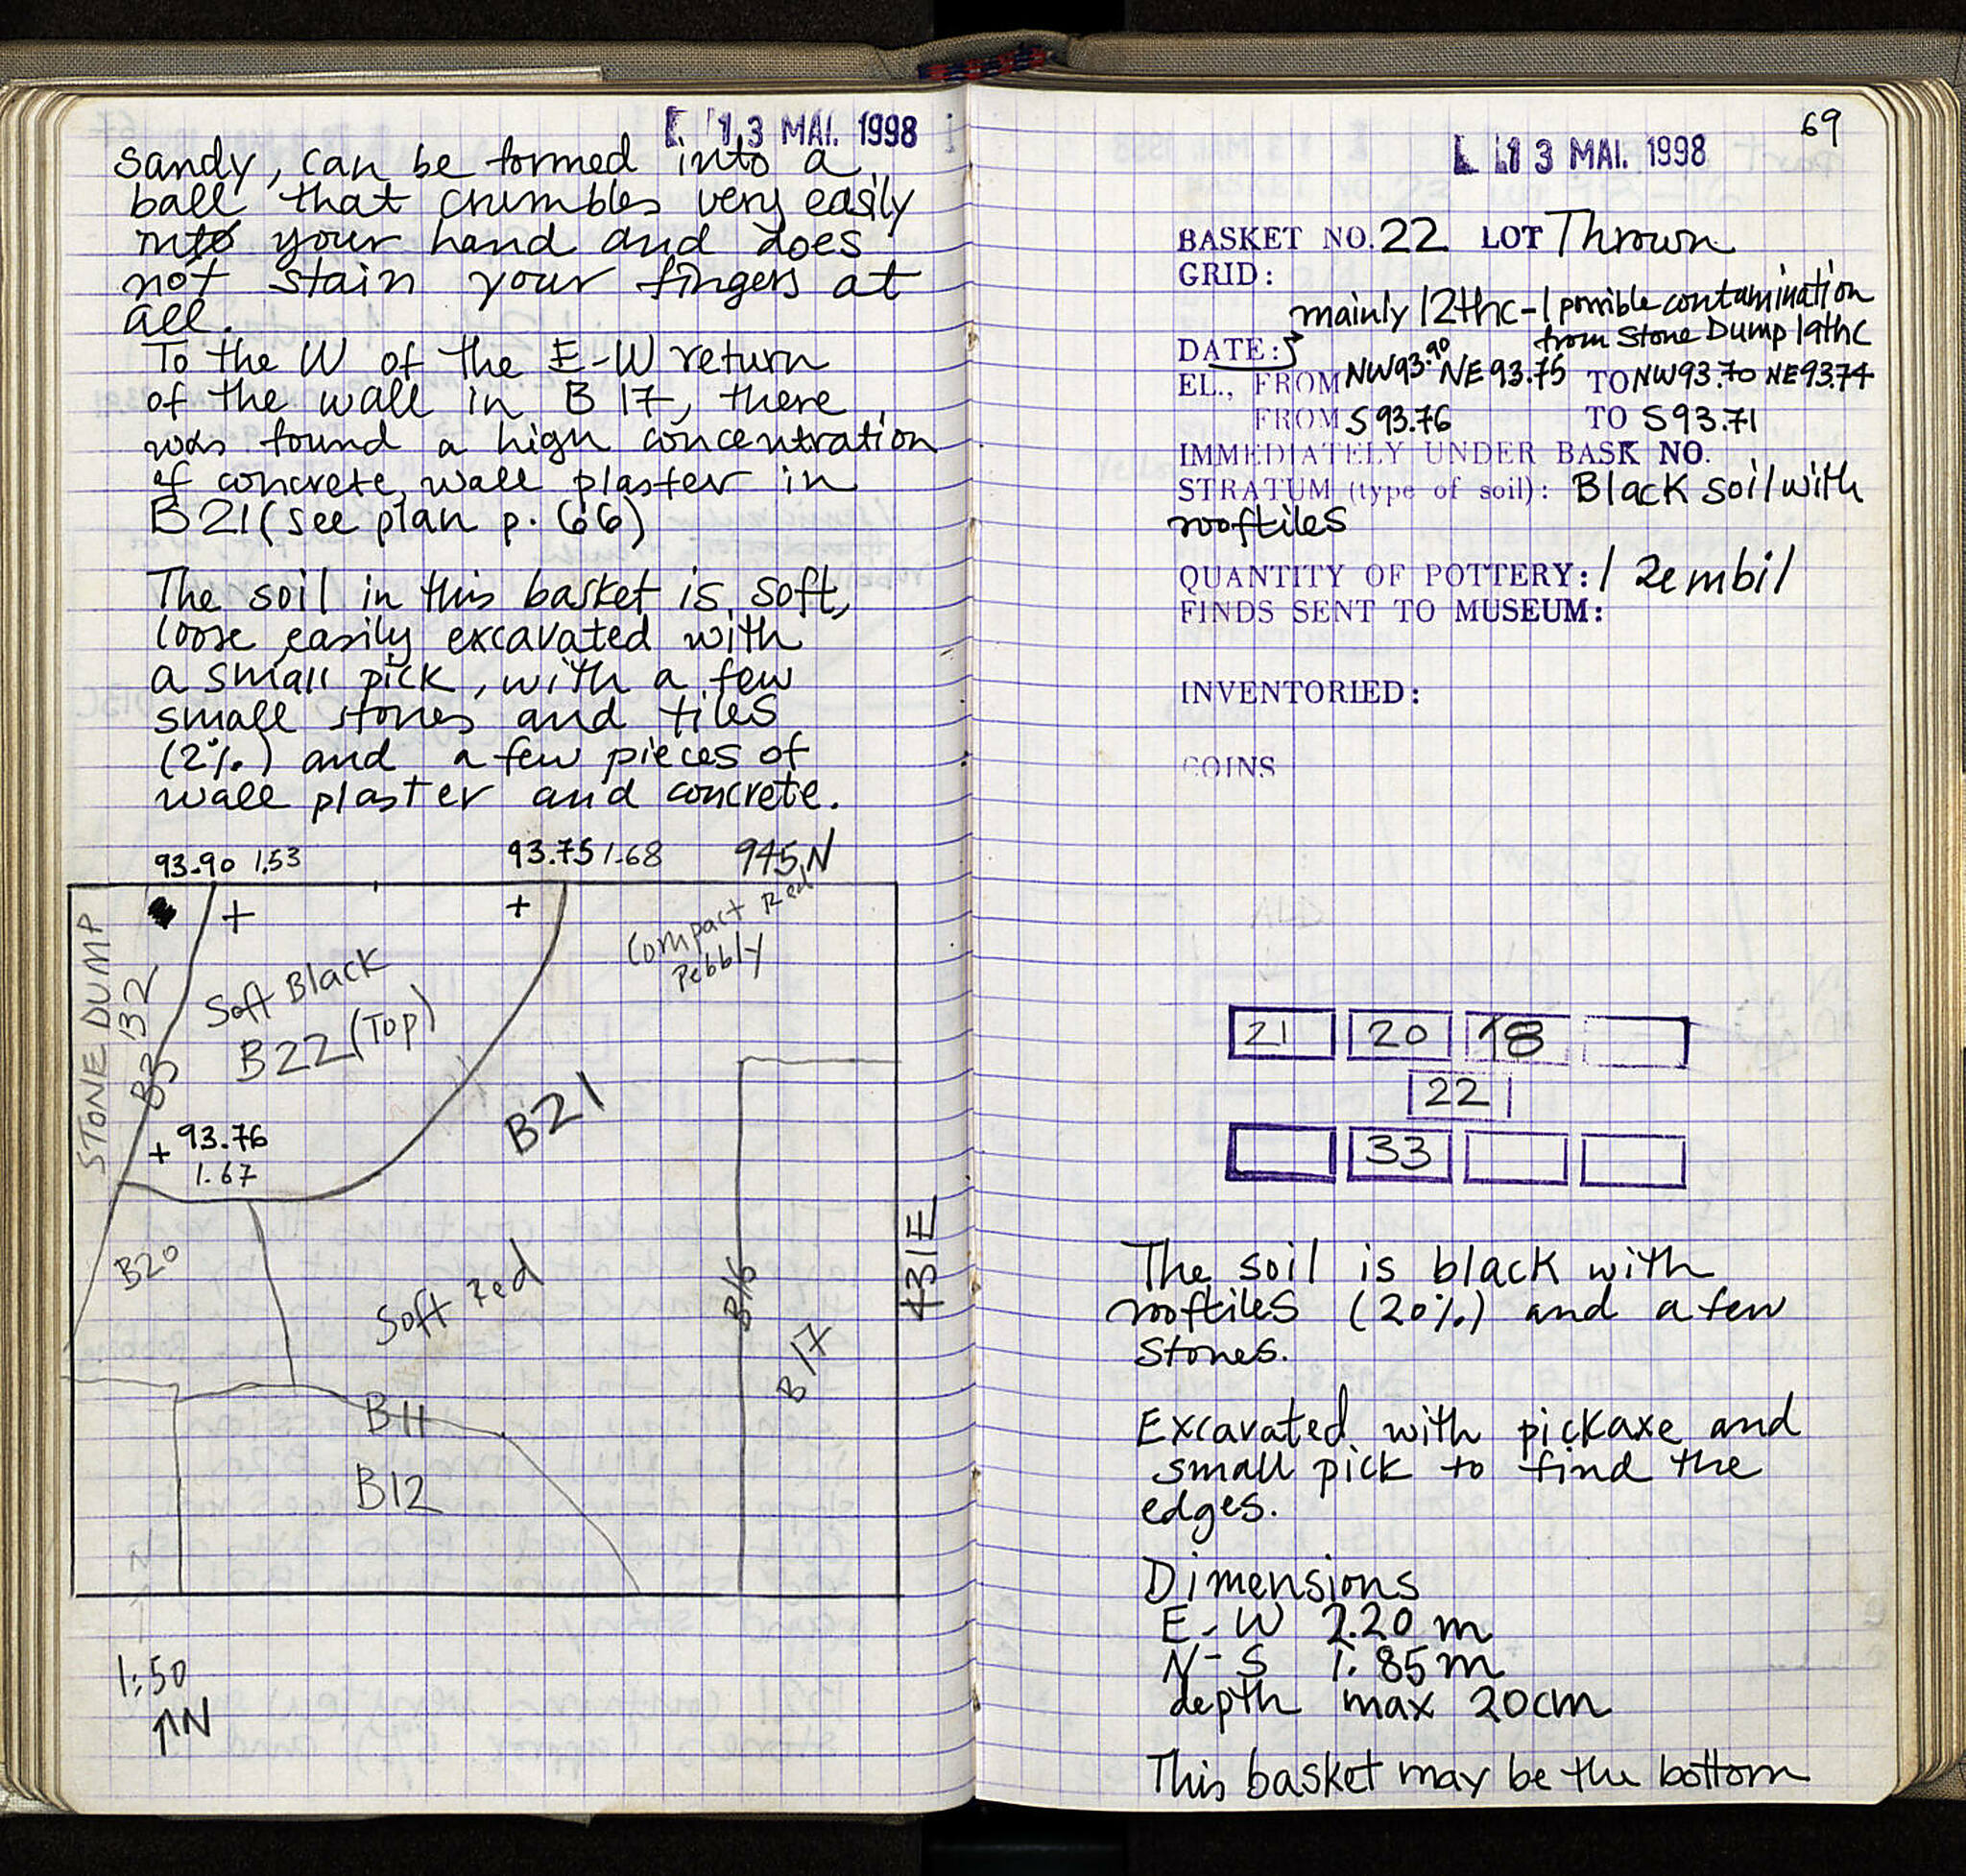 13 MAI. 1998
sandy, can be formed into a
ball that crumbles very easily
into your hand and does
not stain your fingers at
all.
To the W of the E-W return
of the wall in B17, there
was found a high concentration
of concrete, wall plaster in
B21 (see plan p. 66)
The soil in this basket is soft,
loose, easily excavated with
a small pick, with a few
small stones and tiles
(2%) and a few pieces of
wall plaster and concrete.
93.90 1.53 93.75 1.68 945N
STONE DUMP
B3 B2
Soft Black
B22 (Top)
Compact Red
Pebbly
+ 93.76
1.67
B21
B20
Soft Red
B16
B17
431E
B11
B12
1:50
↑N
69
13 MAI. 1998
BASKET NO. 22 LOT Thrown
GRID:
mainly 12thc - 1 possible contamination
from Stone Dump 19thc
DATE:
EL., FROM NW93.90 NE 93.75 TO NW93.70 NE93.74
FROM S 93.76 TO S93.71
IMMEDIATELY UNDER BASK NO.
STRATUM (type of soil): Black soil with
rooftiles
QUANTITY OF POTTERY: 1 zembil
FINDS SENT TO MUSEUM:
INVENTORIED:
COINS
21 20 18
22
33
The soil is black with
rooftiles (20%) and a few
stones.
Excavated with pickaxe and
small pick to find the
edges.
Dimensions
E-W 2.20 m
N-S 1.85 m
depth max 20cm
This basket may be the bottom